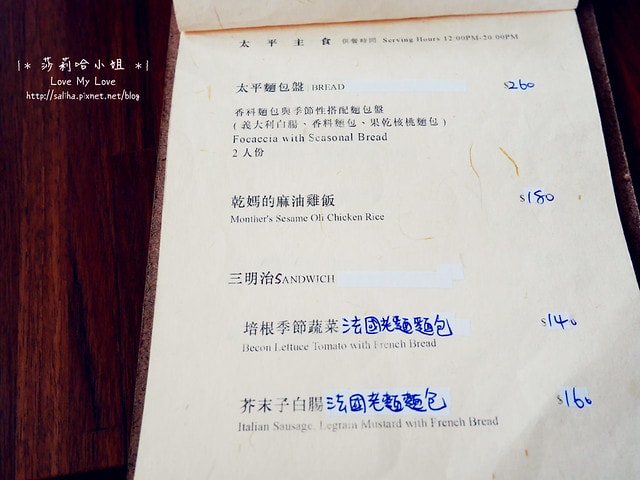 |* 莎莉哈小姐 *|
Love My Love
http://saliha.pixnet.net/blog
太平主食 供餐時間 Serving Hours 12:00PM-20:00PM
太平麵包盤 | BREAD $260
香料麵包與季節性搭配麵包盤
( 義大利白腸、香料麵包、果乾核桃麵包 )
Focaccia with Seasonal Bread
2 人份
乾媽的麻油雞飯 $180
Monther's Sesame Oli Chicken Rice
三明治SANDWICH
培根季節蔬菜法國老麵麵包 $140
Becon Lettuce Tomato with French Bread
芥末子白腸法國老麵麵包 $160
Italian Sausage, Legram Mustard with French Bread